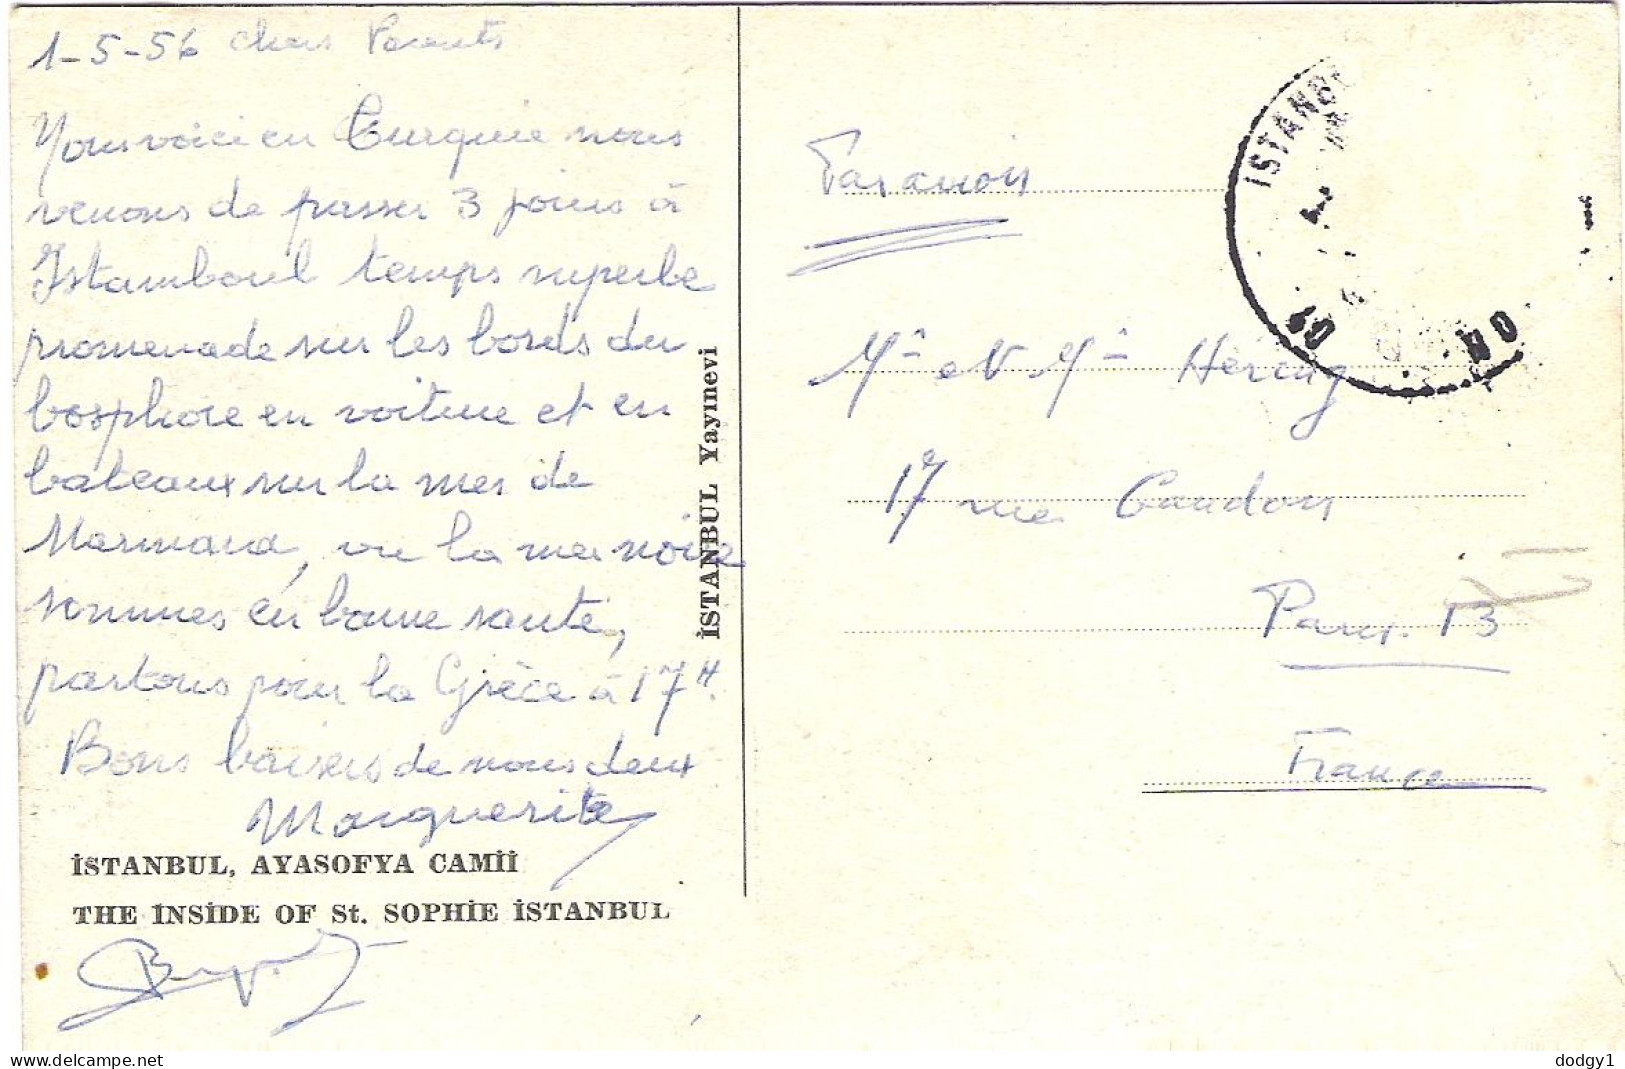 1-5-56 chers Parents
Nous voici en Turquie nous
venons de passer 3 jours à
Istamboul temps superbe
promenade sur les bords du
bosphore en voiture et en
bateaux sur la mer de
Marmara, vu la mer noire
sommes en bonne santé,
partons pour la Grèce à 17H.
Bons baisers de nous deux
Marguerite
İSTANBUL, AYASOFYA CAMİİ
THE İNSİDE OF St. SOPHİE İSTANBUL
İSTANBUL Yayınevi
Par avion
Mr et Mme
17 rue Gandon
Paris. 13
France
İSTANB
dodgy1